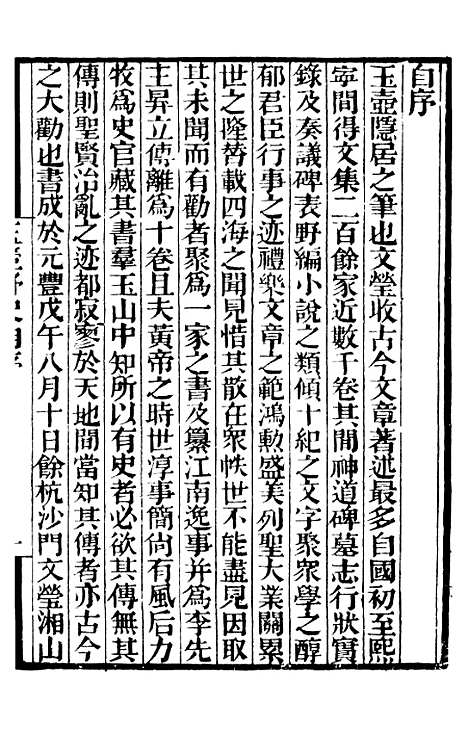 自序
玉壺隱居之筆也文瑩收古今文章著述最多自國初至熙
寧間得文集二百餘家近數千卷其間神道碑墓志行狀實
錄及奏議碑表野編小說之類傾十紀之文字聚衆學之醇
郁君臣行事之迹禮樂文章之範鴻勳盛美列聖大業關累
世之隆替載四海之聞見惜其散在衆帙世不能盡見因取
其未聞而有勸者聚爲一家之書及纂江南逸事并爲李先
主昇立傳離爲十卷且夫黃帝之時世淳事簡尙有風后力
牧爲史官藏其書羣玉山中知所以有史者必欲其傳無其
傳則聖賢治亂之迹都寂寥於天地間當知其傳者亦古今
之大勸也書成於元豐戊午八月十日餘杭沙門文瑩湘山
一